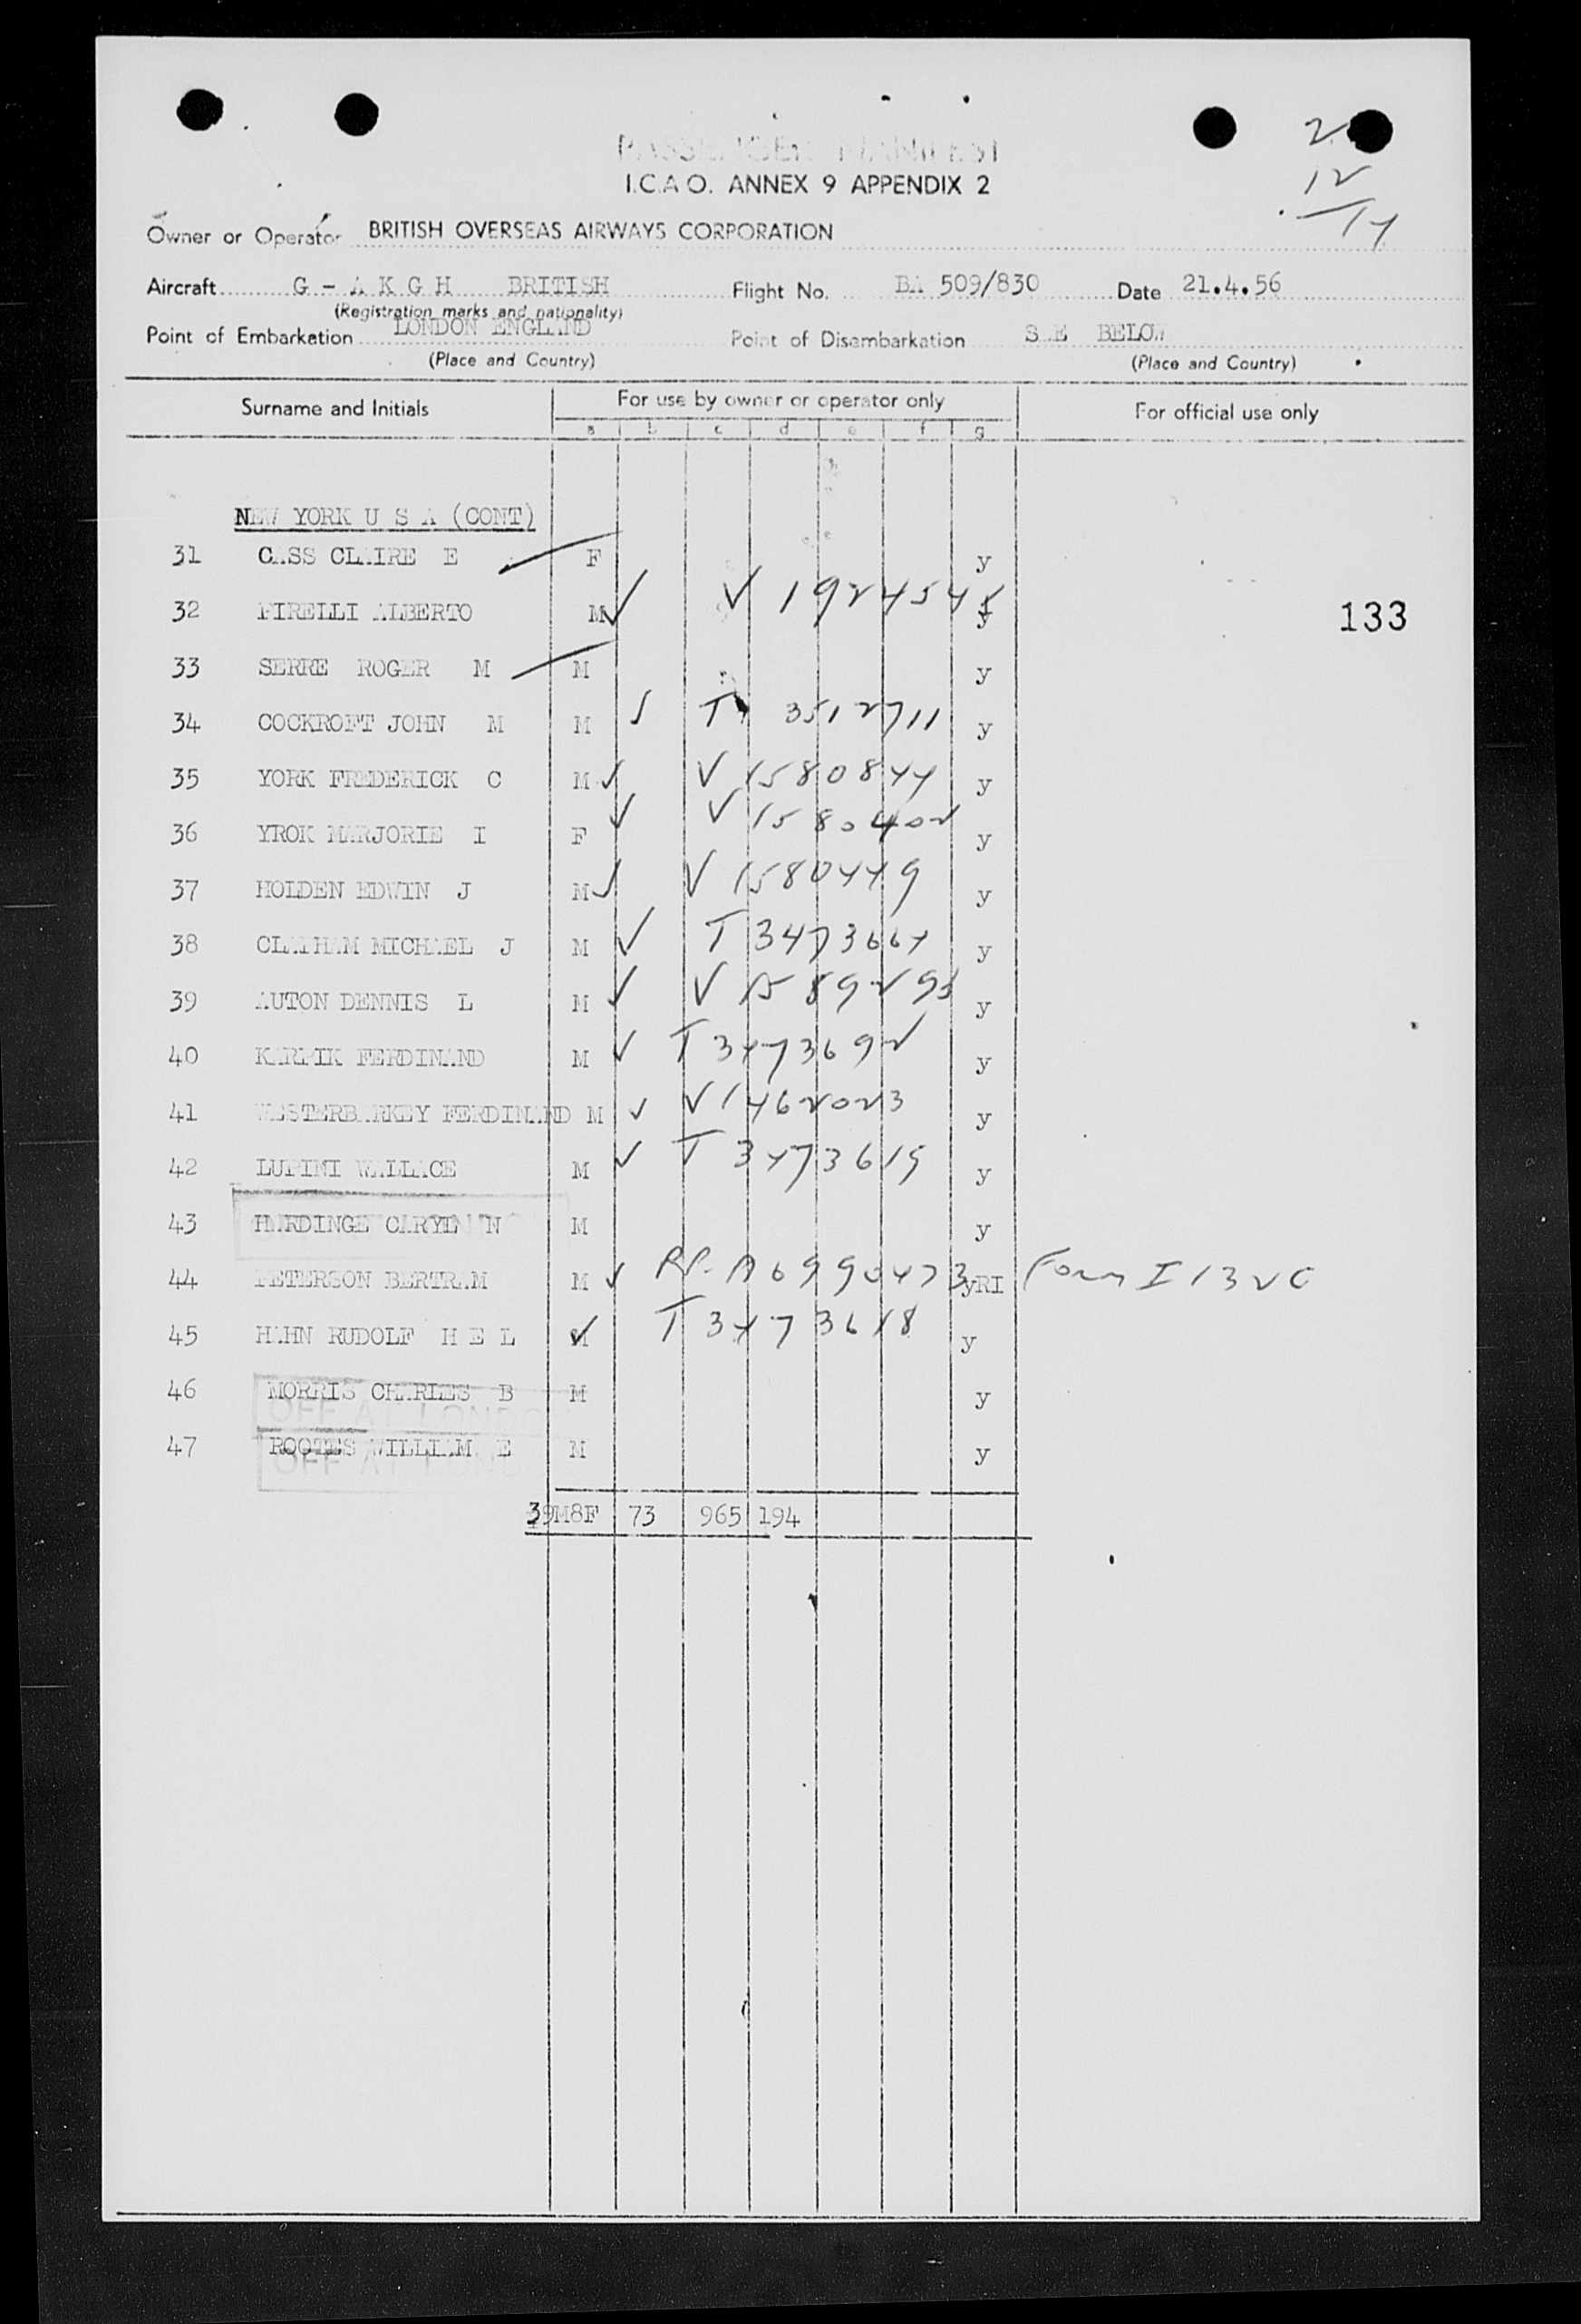 PASSENGER MANIFEST
I.C.A.O. ANNEX 9 APPENDIX 2
2
12
14
Owner or Operator BRITISH OVERSEAS AIRWAYS CORPORATION
Aircraft G - A K G H BRITISH Flight No. BA 509/830 Date 21.4.56
(Registration marks and nationality)
Point of Embarkation LONDON ENGLAND Point of Disembarkation SEE BELOW
(Place and Country) (Place and Country)
Surname and Initials For use by owner or operator only For official use only
a b c d e f g
NEW YORK U S A (CONT)
31 CASS CLAIRE E F y
32 PIRELLI ALBERTO M V 1924545 y
133
33 SERRE ROGER M M y
34 COCKROFT JOHN M M T 3512711 y
35 YORK FREDERICK C M V 1580844 y
36 YROK MARJORIE I F V 1580402 y
37 HOLDEN EDWIN J M V 1580449 y
38 CLATHAM MICHAEL J M T 3473664 y
39 AUTON DENNIS L M V 1589293 y
40 KARPIK FERDINAND M T 3473692 y
41 WESTERBARKEY FERDINAND M V 1462023 y
42 LUPINI WALLACE M T 3473619 y
43 HARDINGE CARYL N M y
44 PETERSON BERTRAM M RP. A6990473 yRI Form I 132C
45 HAHN RUDOLF H E L M T 3473618 y
46 MORRIS CHARLES B M y
OFF AT LONDON
47 ROOTES WILLIAM E M y
OFF AT LONDON
39M8F 73 965 194